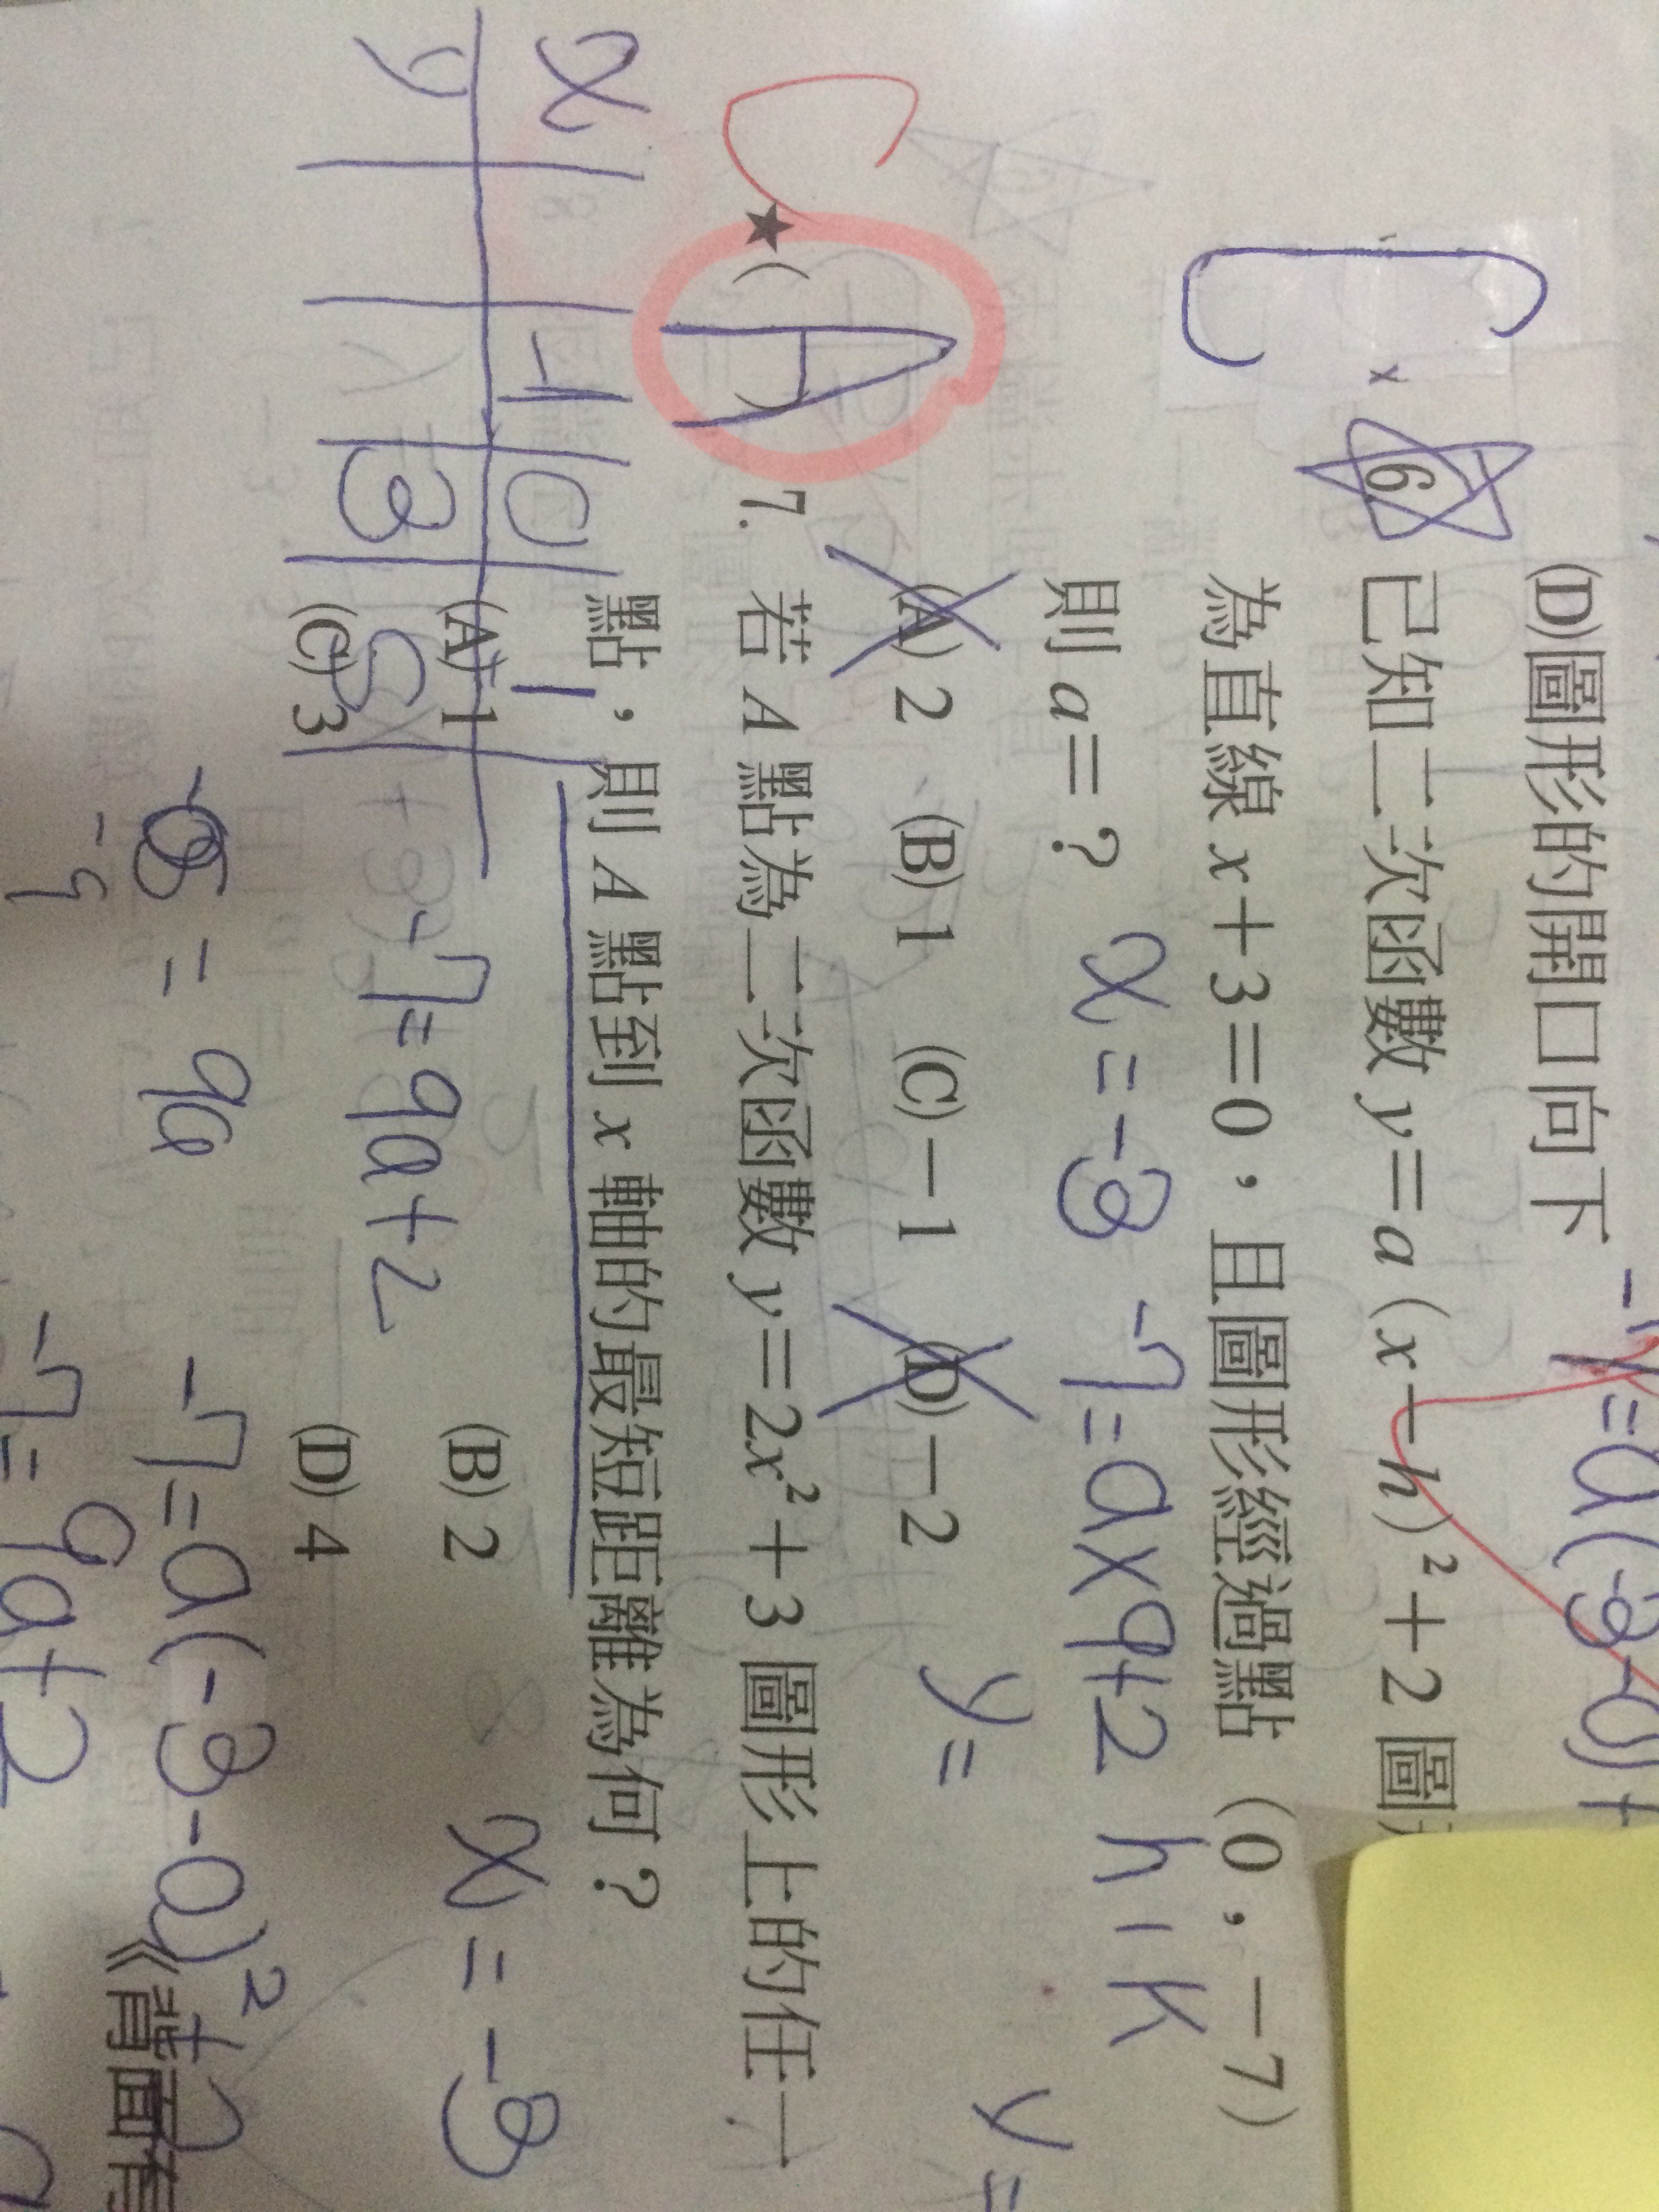 (D)圖形的開口向下
C
6 已知二次函數 y=a(x-h)²+2 圖
為直線 x+3=0,且圖形經過點 (0,-7)
則 a=? x=-3 -7=a×9+2 h, k
(A) 2 (B) 1 (C) -1 (D) -2 y=
y=
C ★(A) 7. 若 A 點為二次函數 y=2x²+3 圖形上的任一
點,則 A 點到 x 軸的最短距離為何?
(A) 1 (B) 2
(C) 3 (D) 4
x -1 0 1
y 3 5
x=-3
-7=9a+2
-7=a(-3-0)²+2
=9a
-9
-7=9a+2
《背面有